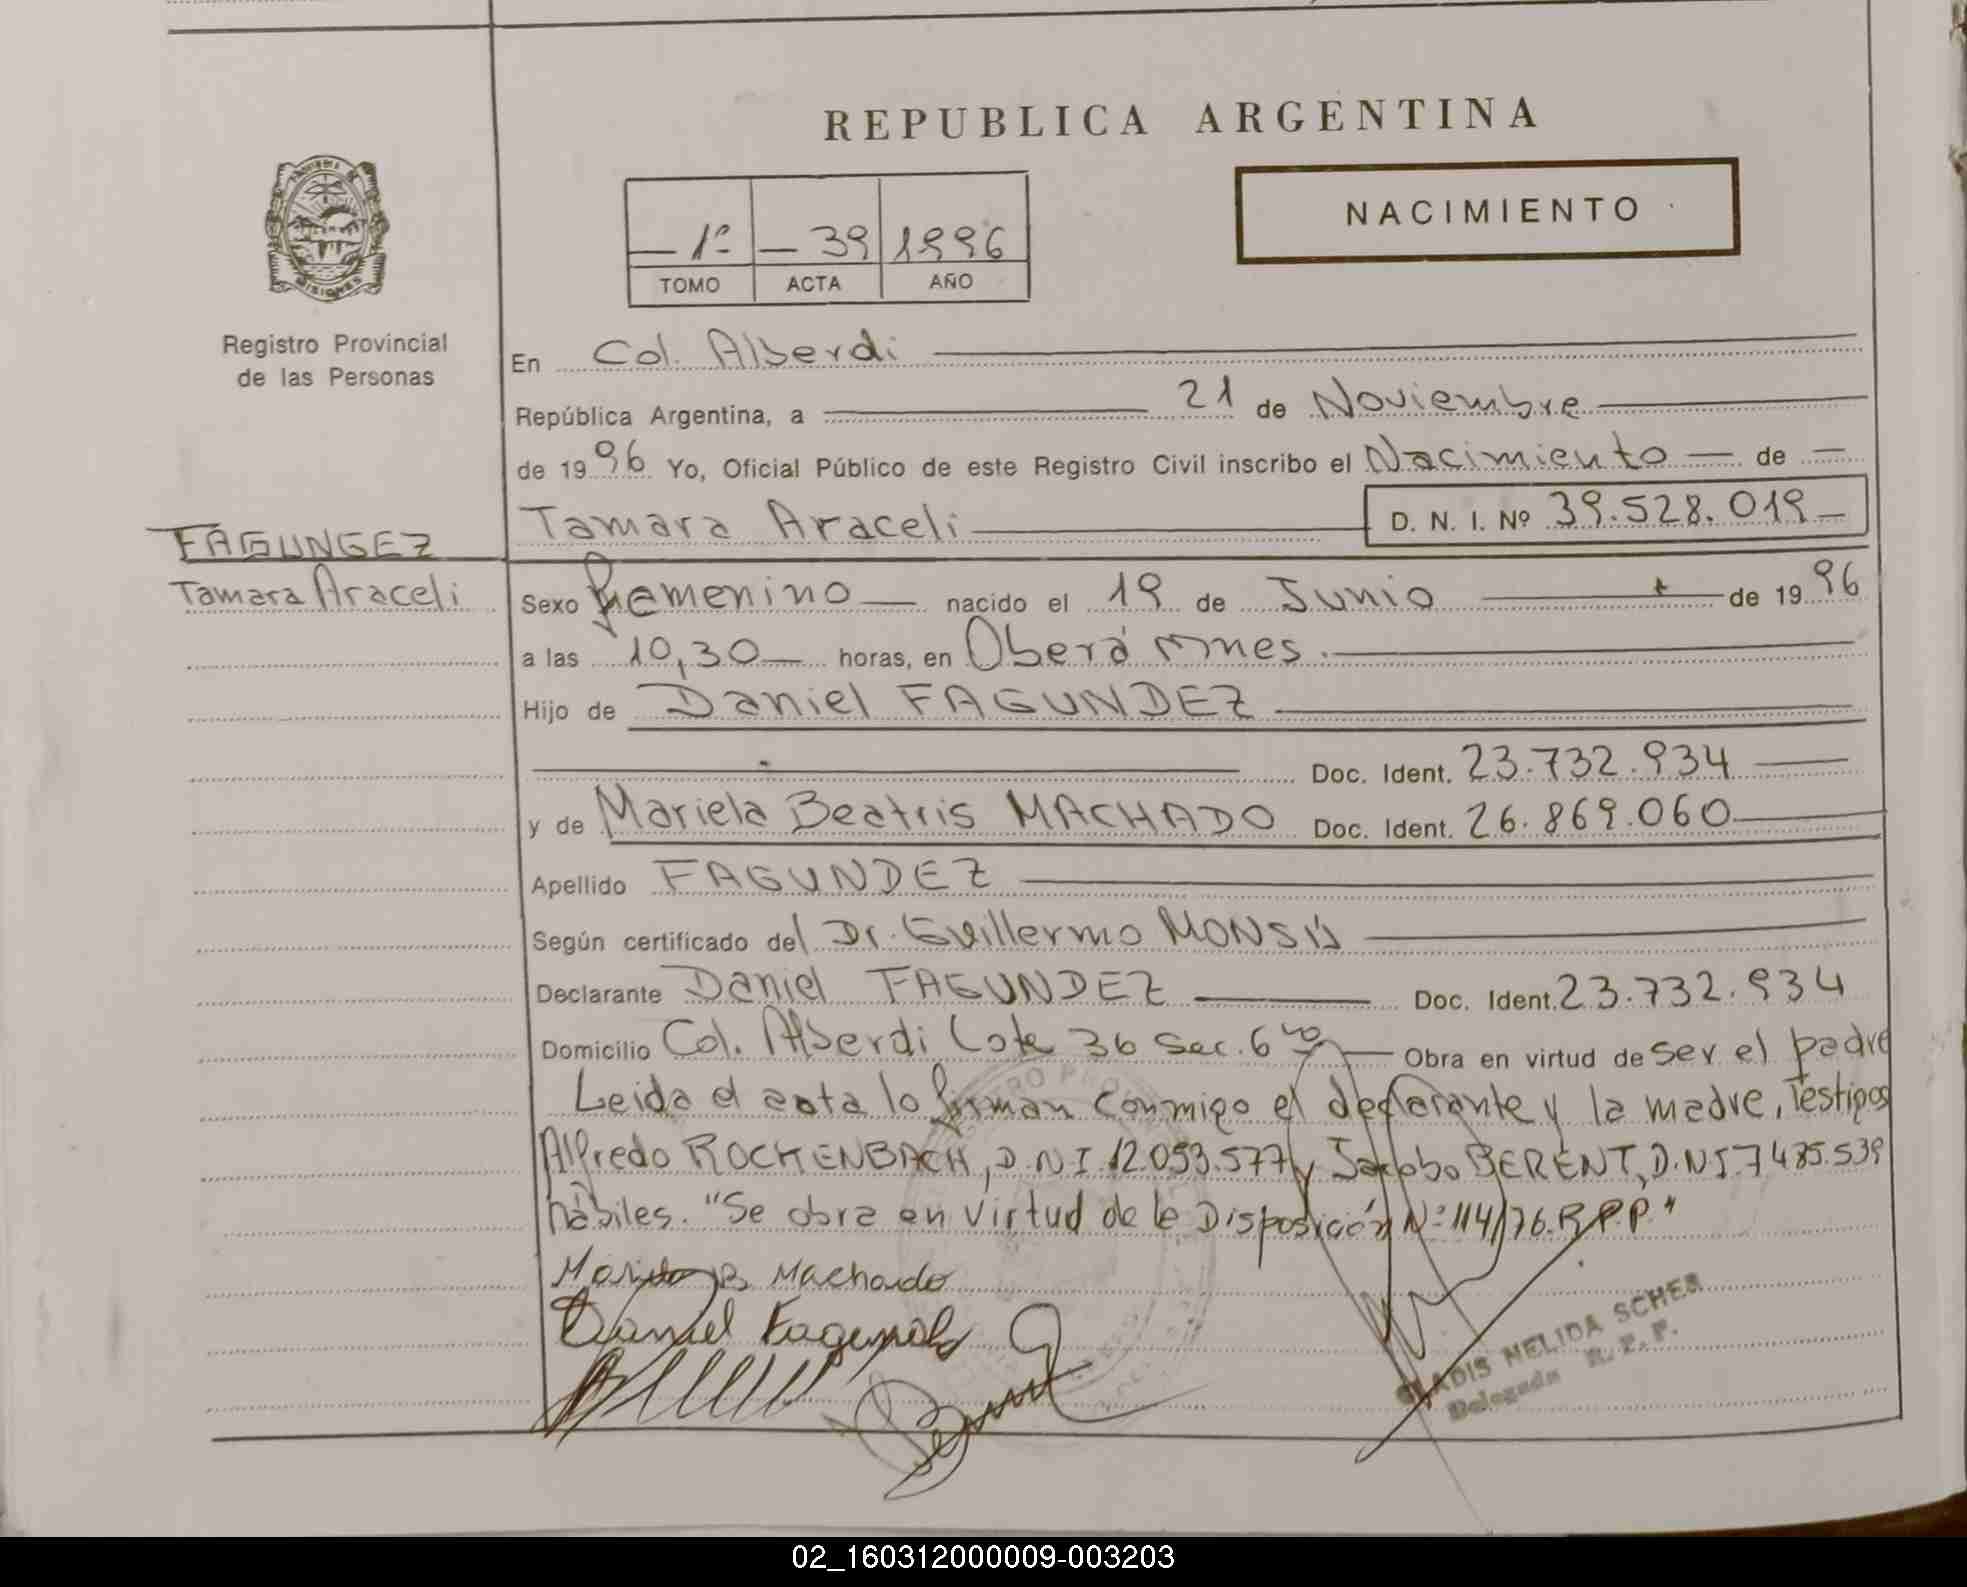 REPUBLICA ARGENTINA
NACIMIENTO
1º 39 1996
TOMO ACTA AÑO
MISIONES
Registro Provincial
de las Personas
En Col. Alberdi
República Argentina, a 21 de Noviembre
de 1996 Yo, Oficial Público de este Registro Civil inscribo el Nacimiento de
Tamara Araceli D. N. I. Nº 39.528.019
FAGUNGEZ
Tamara Araceli
Sexo Femenino nacido el 19 de Junio de 1996
a las 10,30 horas, en Oberá Mnes.
Hijo de Daniel FAGUNDEZ
Doc. Ident. 23.732.934
y de Mariela Beatris MACHADO Doc. Ident. 26.869.060
Apellido FAGUNDEZ
Según certificado del Dr. Guillermo
Declarante Daniel FAGUNDEZ Doc. Ident. 23.732.934
Domicilio Col. Alberdi Lote 36 Sec. 6 Obra en virtud de ser el padre
Leida el acta lo firman conmigo el declarante y la madre, Testigos
Alfredo ROCKENBACH, D.N.I. 12.053.577 y Jacobo BERENT, D.N.I. 7485.539
hábiles. "Se obra en virtud de la Disposición Nº 114/76.R.P.P."
B Machado
Daniel Fagundez
GLADIS NELIDA SCHER
Delegada R. P. P.
02_160312000009-003203